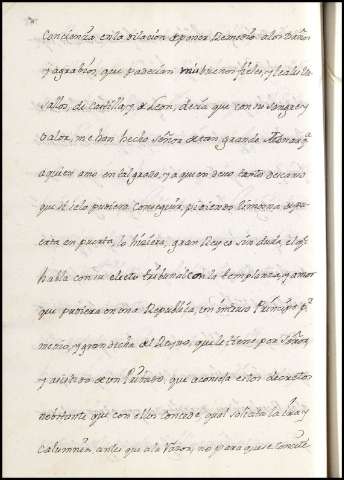 Conciencia en la dilacion de poner Remedio a los Daños
y agrabios, que padecian mis buenos fieles, y leales Va
sallos, de Castilla, y de Leon, decia que con su Sangre y
Valor, me han hecho Señor de tan grande Monarq.ª
a quien amo en tal grado, y a quien devo tanto descanso
que si selo pudiera conseguir pidiendo limosna de pu
erta en puerta, lo hiziera, gran Rey es sin duda, el q.e
habla con su electo tribunal con la templanza, y amor
que pudiera en una Republica, un intruso Principe p.r
merio, y gran dicha del Reyno, que le tiene por Señor,
y asistido de un Privado, que aconseja estos decretos
nobstante que con ellos concede, qual solicita la ira y
calumnia, antes que a la Razon, no para que se